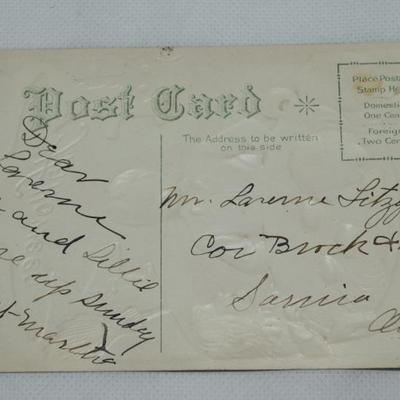 Post Card
Place Postage
Stamp Here
Domestic
One Cent
Foreign
Two Cents
The Address to be written
on this side
Dear
Laverne
and Lillie
up Sunday
Martha
Mr. Laverne Fitzg
Cor Brock
Sarnia